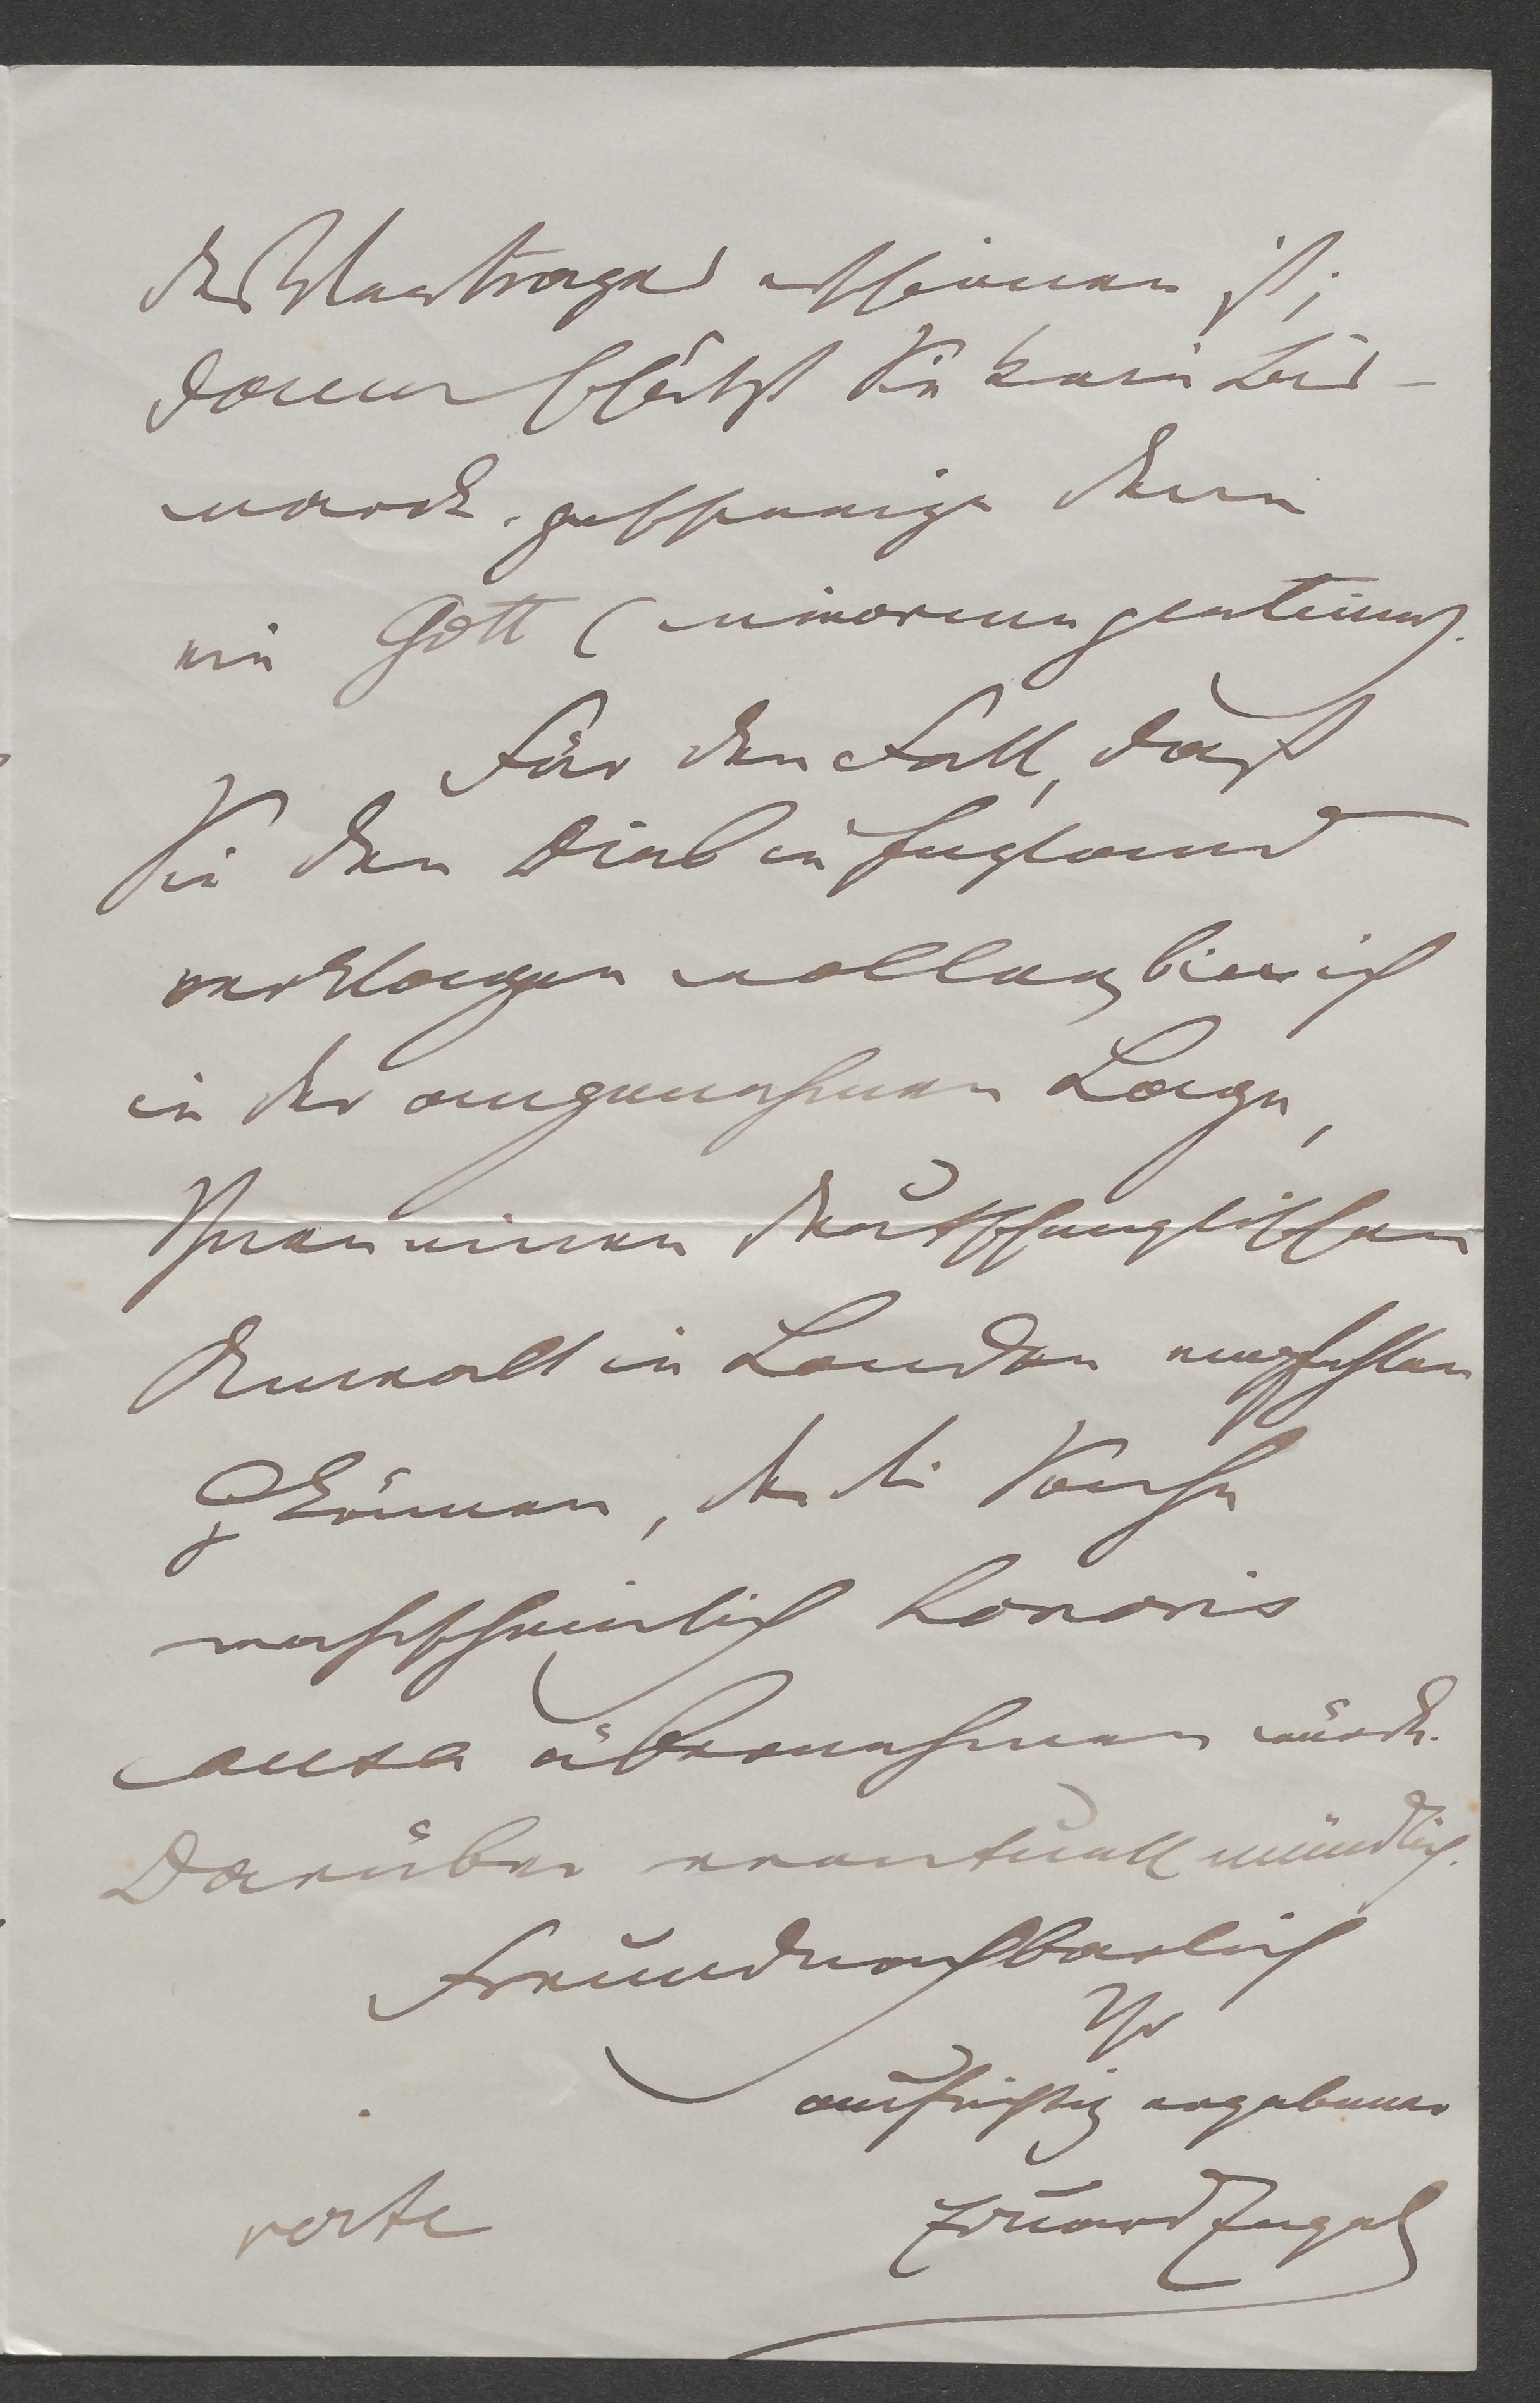 des Vertrages erschienen ist;
dann schützt Sie kein Bis-
marck, geschweige denn
ein Gott (minorum gentium).
Für den Fall, daß
Sie den Dieb in England
verklagen wollen, bin ich
in der angenehmen Lage,
Ihnen einen deutschenglischen
Anwalt in London empfehlen
z. können, der die Sache
wahrscheinlich honoris
causa übernehmen würde.
Darüber eventuell mündlich.
Freundnachbarlich
Ihr
aufrichtig ergebener
Eduard Engel
verte